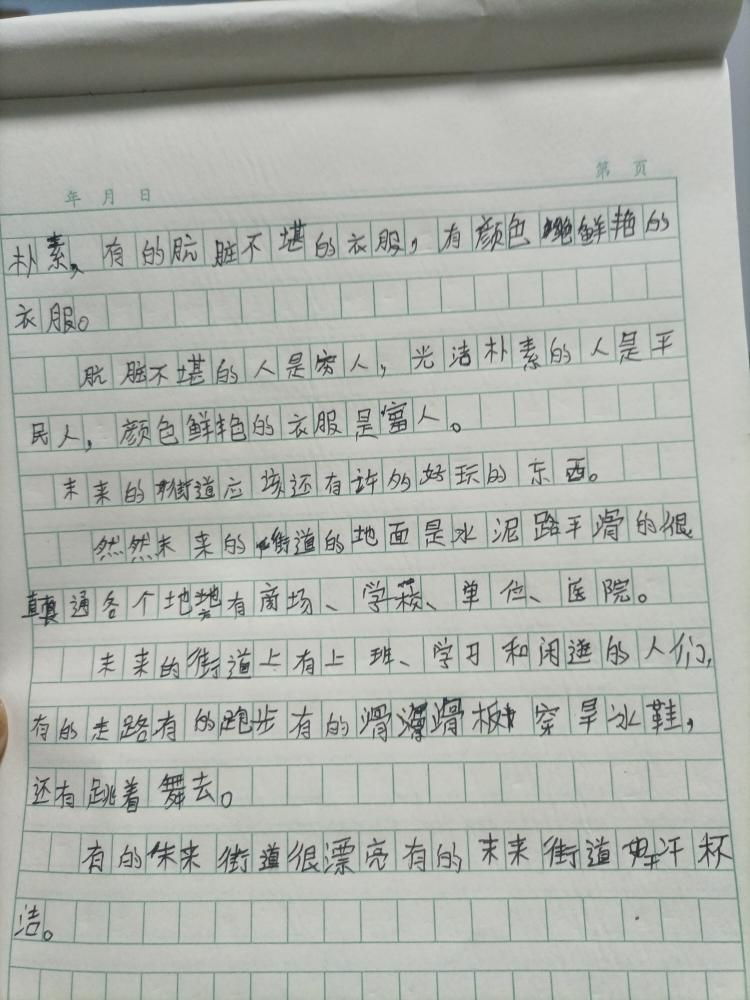 第 页
年 月 日
朴素，有的肮脏不堪的衣服，有颜色鲜艳的
衣服。
肮脏不堪的人是穷人，光洁朴素的人是平
民人，颜色鲜艳的衣服是富人。
未来的街道应该还有许多好玩的东西。
然然未来的街道的地面是水泥路平滑的很
直通各个地势有商场、学校、单位、医院。
未来的街道上有上班、学习和闲逛的人们，
有的走路有的跑步有的滑滑板 穿旱冰鞋，
还有跳着舞去。
有的未来街道很漂亮有的未来街道
洁。